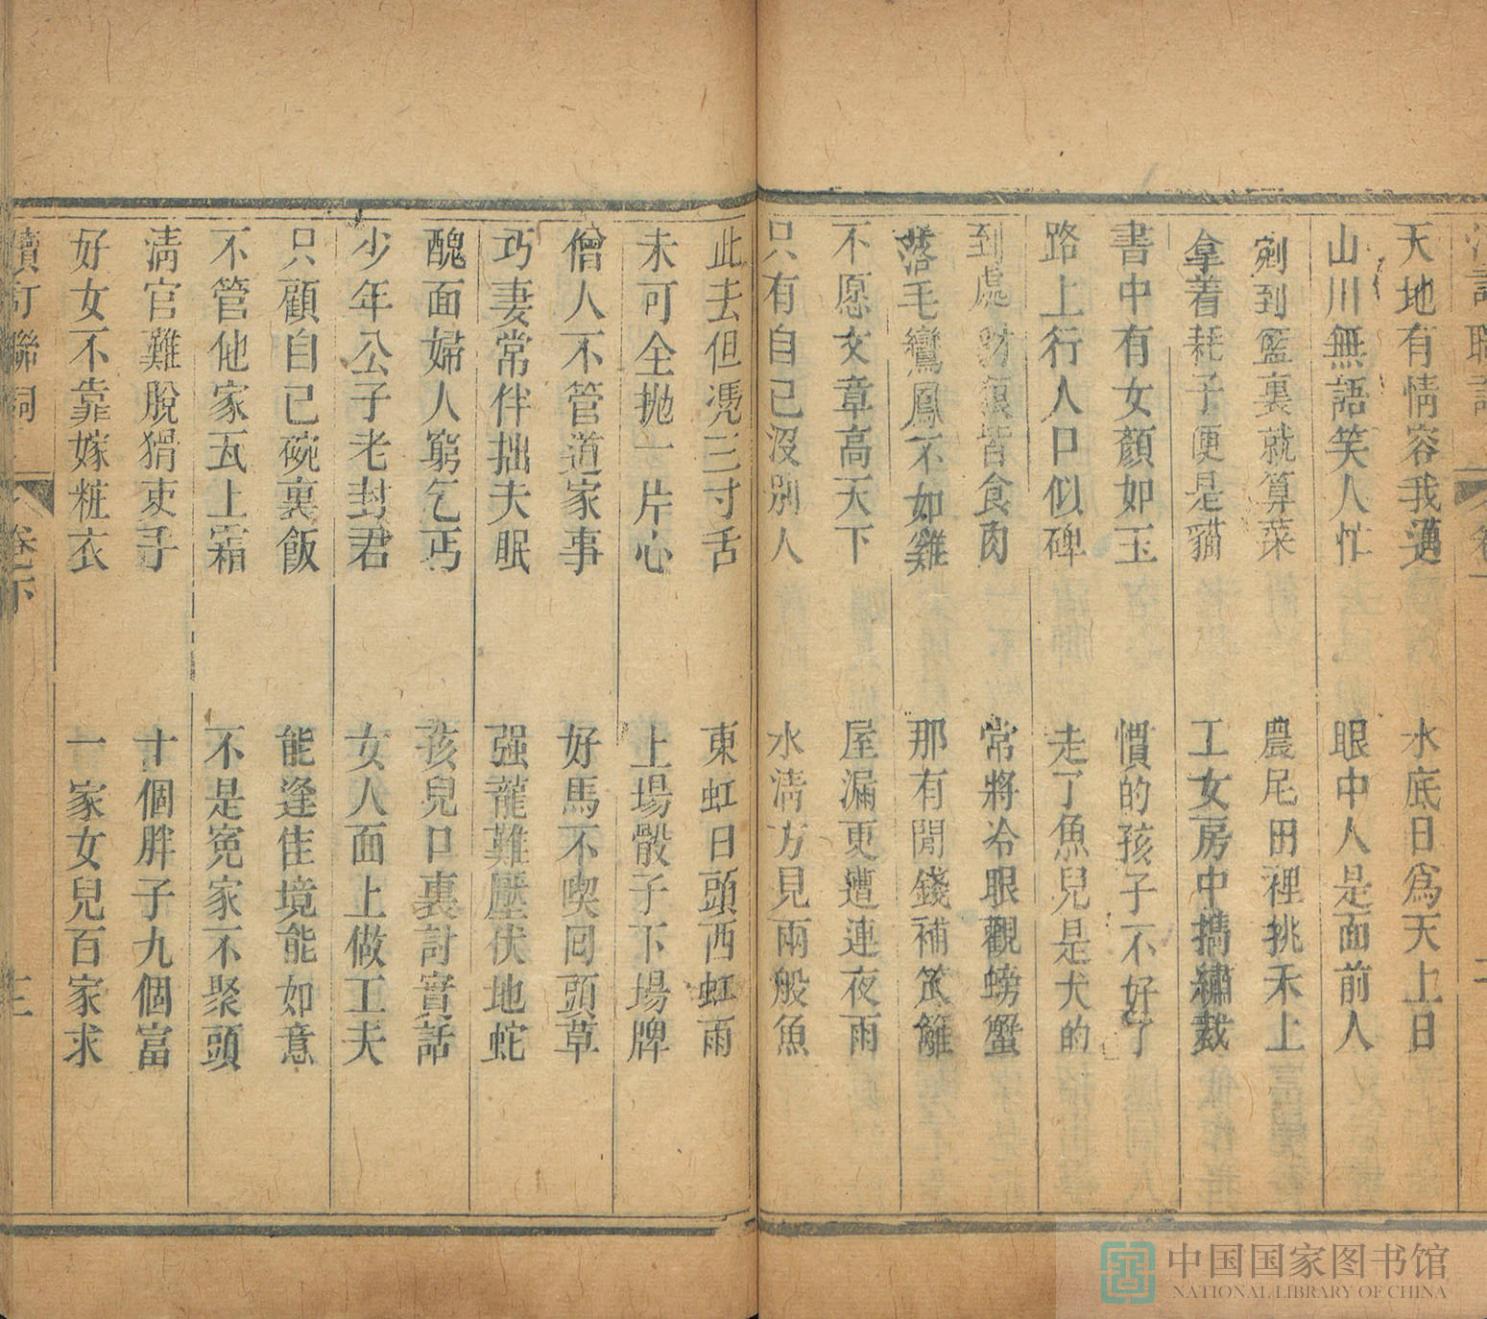 天地有情容我邁　水底日爲天上日
山川無語笑人忙　眼中人是面前人
剜到籃裏就算菜　農尼田裡挑禾上
拿着耗子便是貓　工女房中擣繡裁
書中有女顏如玉　慣的孩子不好了
路上行人口似碑　走了魚兒是大的
到處豺狼皆食肉　常將冷眼觀螃蟹
落毛鸞鳳不如雞　那有閒錢補笊籬
不愿文章高天下　屋漏更遭連夜雨
只有自己沒別人　水清方見兩般魚
此去但凭三寸舌　東虹日頭西虹雨
未可全拋一片心　上場骰子下場牌
僧人不管道家事　好馬不喫回頭草
巧妻常伴拙夫眠　强龍難壓伏地蛇
醜面婦人窮乞丐　孩兒口裏討實話
少年公子老封君　女人面上做工夫
只顧自已碗裏飯　能逢佳境能如意
不管他家瓦上霜　不是寃家不聚頭
淸官難脫猾吏子　十個胖子九個富
好女不靠嫁粧衣　一家女兒百家求
續訂聯詞　卷下　三
中国国家图书馆
NATIONAL LIBRARY OF CHINA